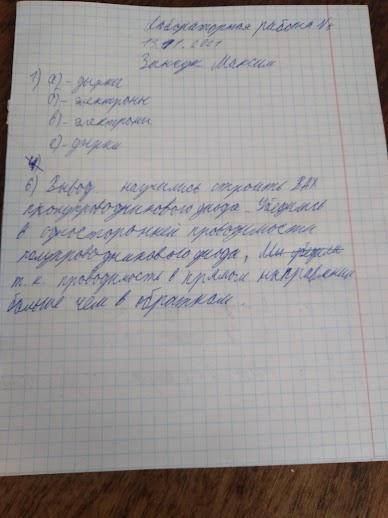 Лабораторная работа №
Максим
1) а) - дырки
б) - электроны
в) - электроны
с) - дырки
6) Вывод научились строить ВАХ
диода. Убедились
в односторонней проводимости
полупроводникового диода,
т.к. проводимость в прямом направлении
больше чем в обратном.